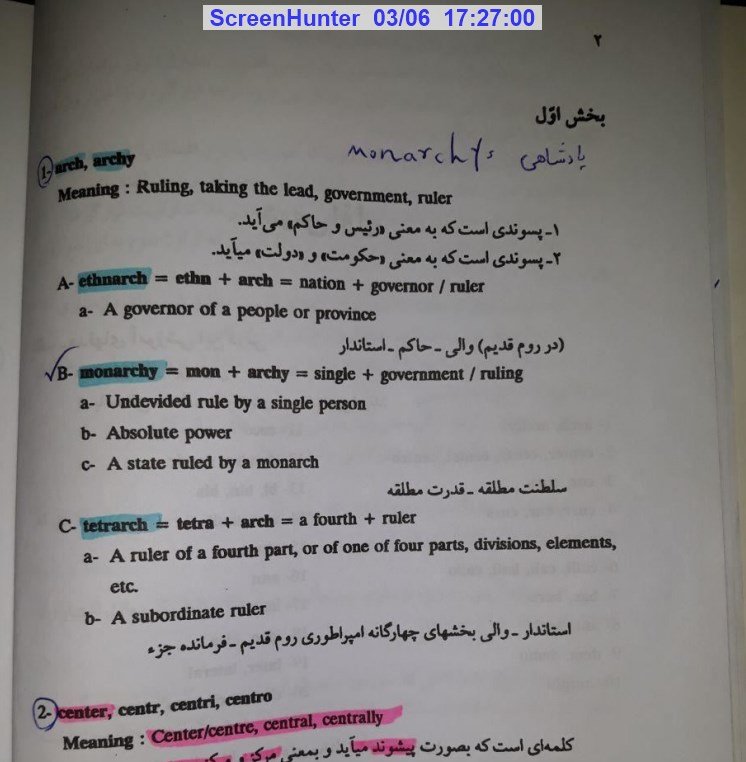 ScreenHunter 03/06 17:27:00
۲
بخش اوّل
monarchy: پادشاهی
1- arch, archy
Meaning : Ruling, taking the lead, government, ruler
۱ـ پسوندی است که به معنی «رئیس و حاکم» می‌آید.
۲ـ پسوندی است که به معنی «حکومت» و «دولت» میآید.
A- ethnarch = ethn + arch = nation + governor / ruler
a- A governor of a people or province
(در روم قدیم) والی ـ حاکم ـ استاندار
B- monarchy = mon + archy = single + government / ruling
a- Undevided rule by a single person
b- Absolute power
c- A state ruled by a monarch
سلطنت مطلقه ـ قدرت مطلقه
C- tetrarch = tetra + arch = a fourth + ruler
a- A ruler of a fourth part, or of one of four parts, divisions, elements,
etc.
b- A subordinate ruler
استاندار ـ والی بخشهای چهارگانه امپراطوری روم قدیم ـ فرمانده جزء
2- center, centr, centri, centro
Meaning : Center/centre, central, centrally
کلمه‌ای است که بصورت پیشوند میآید و بمعنی مرکز و